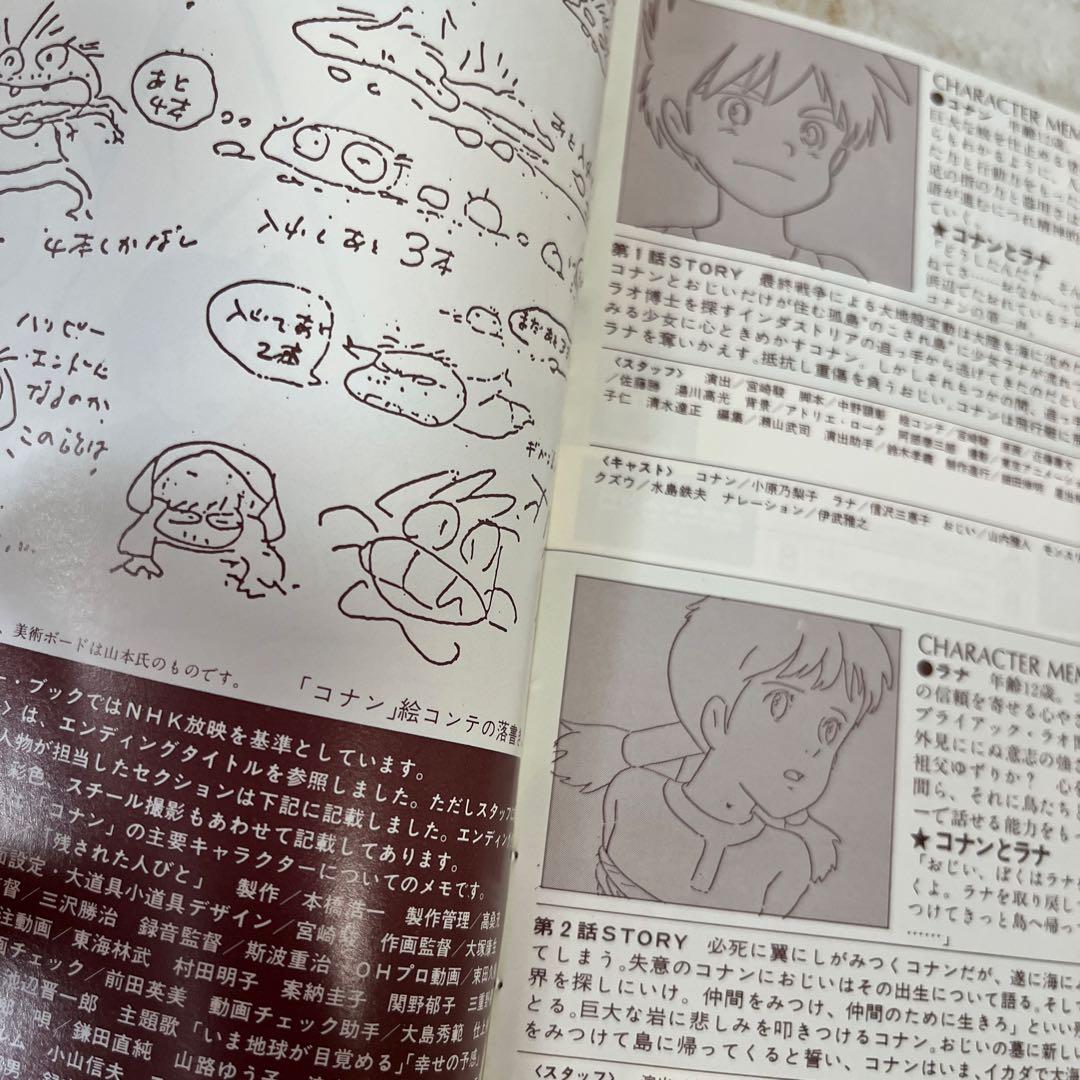 あと
4本
4本しかなし
入れてあと3本
入れてあと
2本
まだあと3
ハッピー
エンドに
なるのか
このらくは
、美術ボードは山本氏のものです。
「コナン」絵コンテの落書き
ー・ブックではNHK放映を基準としています。
は、エンディングタイトルを参照しました。ただしスタッフ
人物が担当したセクションは下記に記載しました。エンディン
彩色、スチール撮影もあわせて記載してあります。
「コナン」の主要キャラクターについてのメモです。
「残された人びと」 製作/本橋浩一 製作管理/高桑充
設定・大道具小道具デザイン/宮崎駿 作画監督/大塚康生
督/三沢勝治 録音監督/斯波重治 OHプロ動画/束田久美
注動画/東海林武 村田明子 案納圭子 関野郁子 三重野
画チェック/前田英美 動画チェック助手/大島秀範 仕上
辺晋一郎 主題歌「いま地球が目覚める」「幸せの予感」
唄/鎌田直純 山路ゆう子
小山信夫
CHARACTER MEM
●コナン 年齢12歳。
巨大な鮫を仕止める
らもわかるように、人
た力と行動力をもった
足の指の力と器用さは
語が進むにつれ精神的
ていく。
★コナンとラナ
「どうしたんだ?
ねてき…おなかへっ
浜辺でたおれているラナ
コナンの第一声。
第1話STORY 最終戦争による大地殻変動は大陸を海に沈めた
コナンとおじいだけが住む孤島“のこされ島”に少女ラナが流れつ
ラオ博士を探すインダストリアの追っ手から逃げてきたのだとい
みる少女に心ときめかすコナン。しかしそれもつかの間、追っ手
ラナを奪いかえす。抵抗し重傷を負うおじい。コナンは飛行艇に飛
〈スタッフ〉 演出/宮崎駿 脚本/中野顕彰 絵コンテ/宮崎駿
/佐藤勝 湯川高光 背景/アトリエ・ローク 阿部泰三郎 撮影/東京アニメーション
子仁 清水達正 編集/瀬山武司 演出助手/鈴木孝義 制作進行/細田伸明
〈キャスト〉 コナン/小原乃梨子 ラナ/信沢三恵子 おじい/山内雅人 モンスリ
クズウ/水島鉄夫 ナレーション/伊武雅之
CHARACTER MEM
●ラナ 年齢12歳。
の信頼を寄せる心やさ
ブライアック・ラオ
外見ににぬ意志の強さ
祖父ゆずりか? 心を
間ら、それに鳥たちと
一で話せる能力をもっ
★コナンとラナ
「おじい、ぼくはラナを
くよ。ラナを取り戻して
つけてきっと島へ帰っ
……」
第2話STORY 必死に翼にしがみつくコナンだが、遂に海に
てしまう。失意のコナンにおじいはその出生について語る。そして
界を探しにいけ。仲間をみつけ、仲間のために生きろ」といい
とる。巨大な岩に悲しみを叩きつけるコナン。おじいの墓に新しい
をみつけて島に帰ってくると誓い、コナンはいま、イカダで大海
〈スタッフ〉